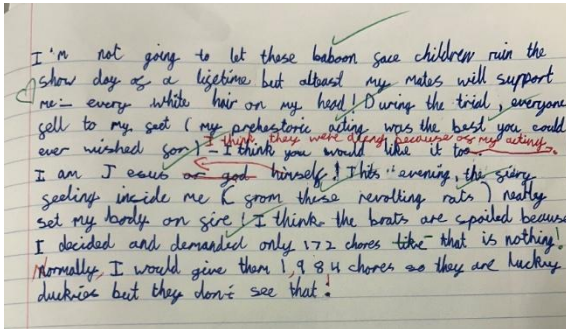 I'm not going to let these baboon face children ruin the
show day of a lifetime but atleast my mates will support
me - every white hair on my head! During the trial, everyone
fell to my feet (my prehestoric acting was the best you could
ever wished for) - I think you would like it too.
I think they were dying because of my acting.
I am Jesus or god himself! This evening, the fiery
feeling inside me (from these revolting rats) neatly
set my body on fire! I think the brats are spoiled because
I decided and demanded only 172 chores like that is nothing!
Normally, I would give them 1,984 chores so they are luckuy
duckies but they don't see that!